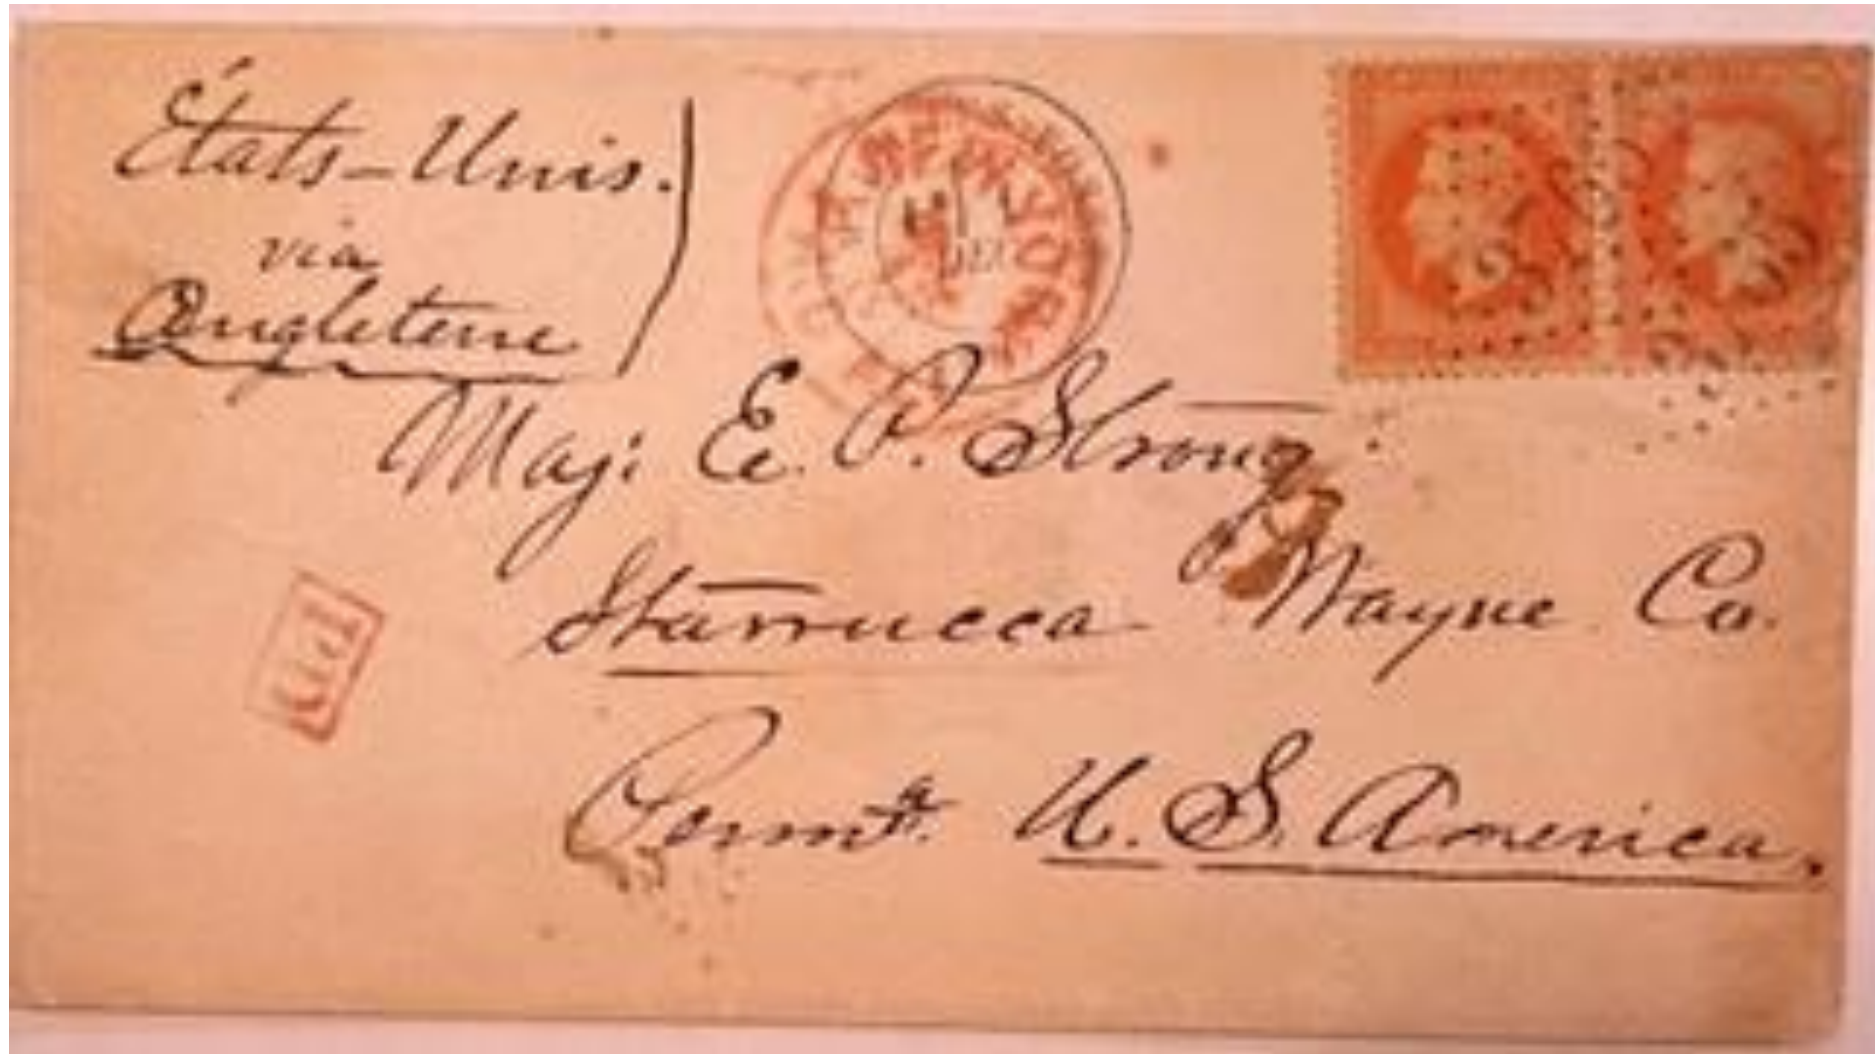 États-Unis.
via
Angleterre
NEW YORK
Maj: E. P. Strong
Starrucca Wayne Co.
Penna. U. S. America.